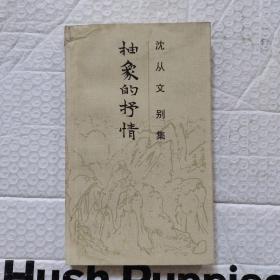 沈从文别集
抽象的抒情
Hush Puppies